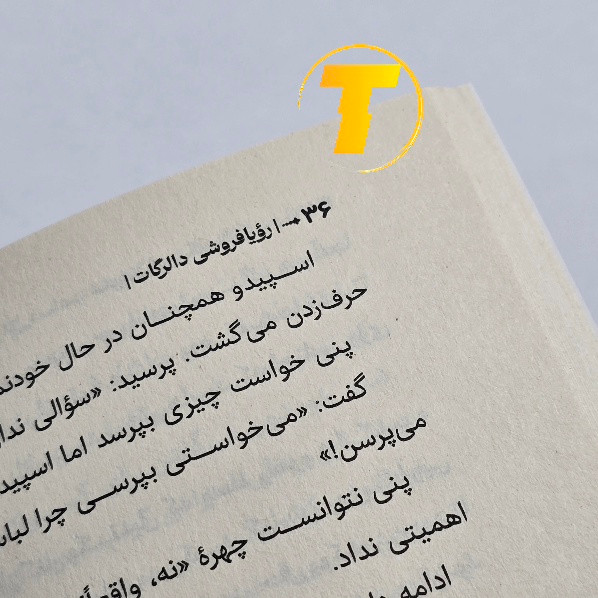 T
۳۶ | رؤیافروشی دالرگات |
اسپیدو همچنان در حال
حرف‌زدن می‌گشت. پرسید: «سؤالی
پنی خواست چیزی بپرسد اما
گفت: «می‌خواستی بپرسی چرا
می‌پرسن!»
پنی نتوانست چهرهٔ «نه،
اهمیتی نداد.
ادامه